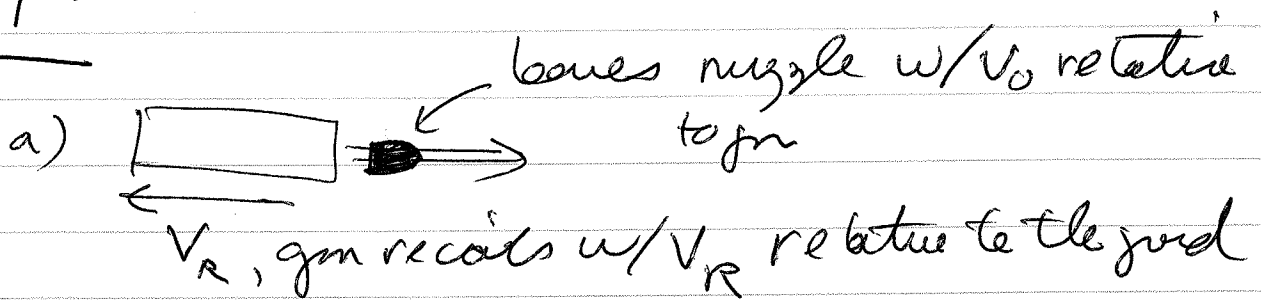 leaves muzzle w/V₀ relative
a) to gun
V_R, gun recoils w/V_R relative to the ground